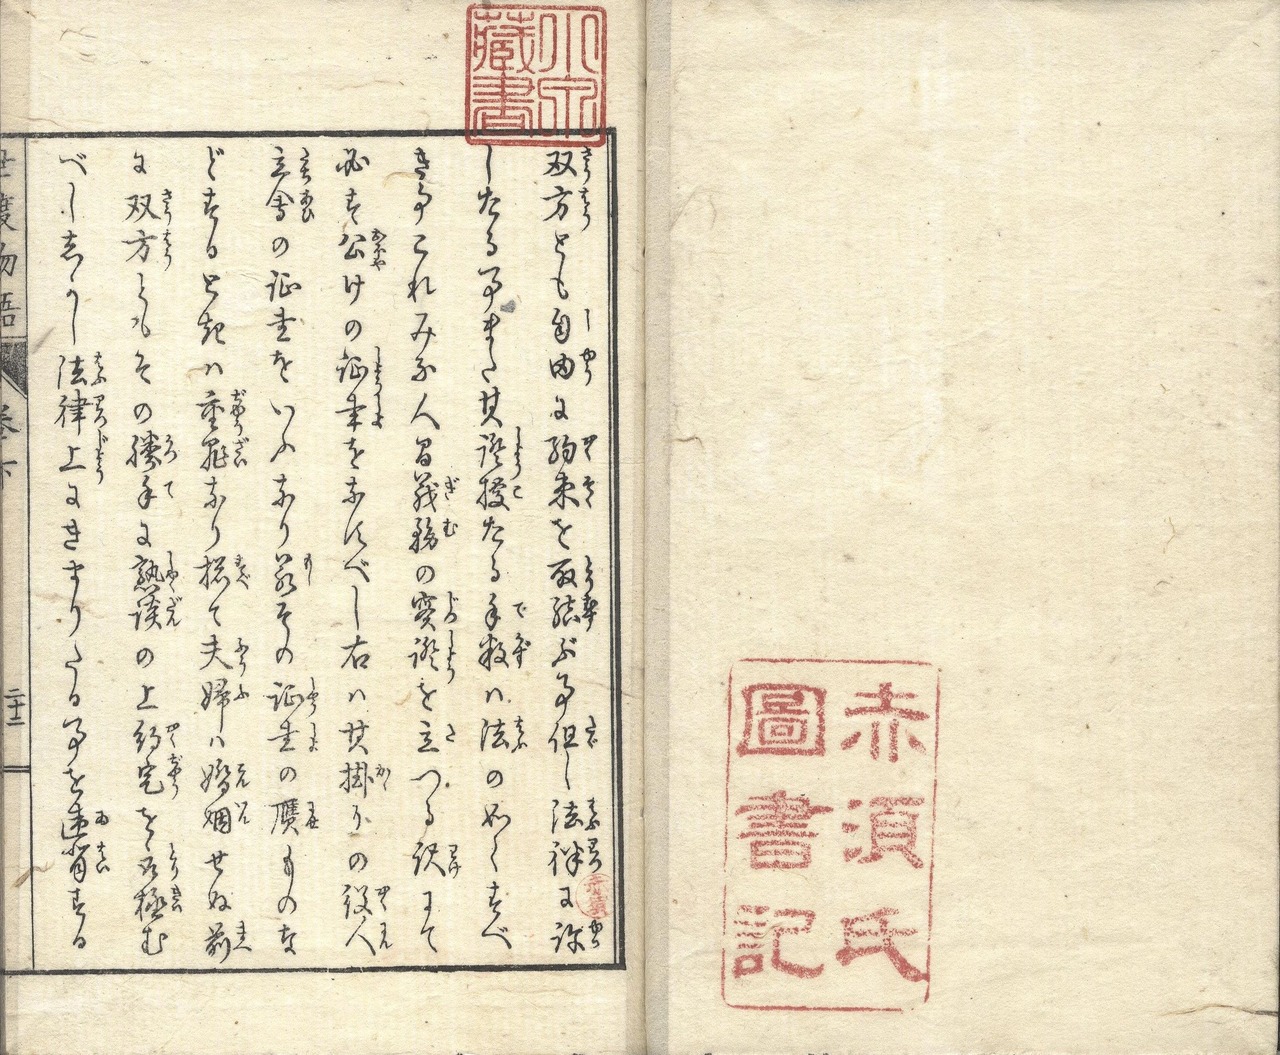 赤須氏
圖書記
小泉
藏書
双方とも自由に約束を取結ぶ事但し法律に許
したる事また其證拠たる手数ハ法の如くすべ
き事これみな人間義務の実證を立つる訳にて
必ず公けの証書をなすべし右ハ其掛りの役人
立会の証書をいふなり若その証書の贋ものな
どする時ハ重罪なり扨て夫婦ハ婚姻せぬ前
に双方ともその勝手に熟談の上約定を取極む
べししかし法律上にきまりたる事を違背する
巻下
二十二